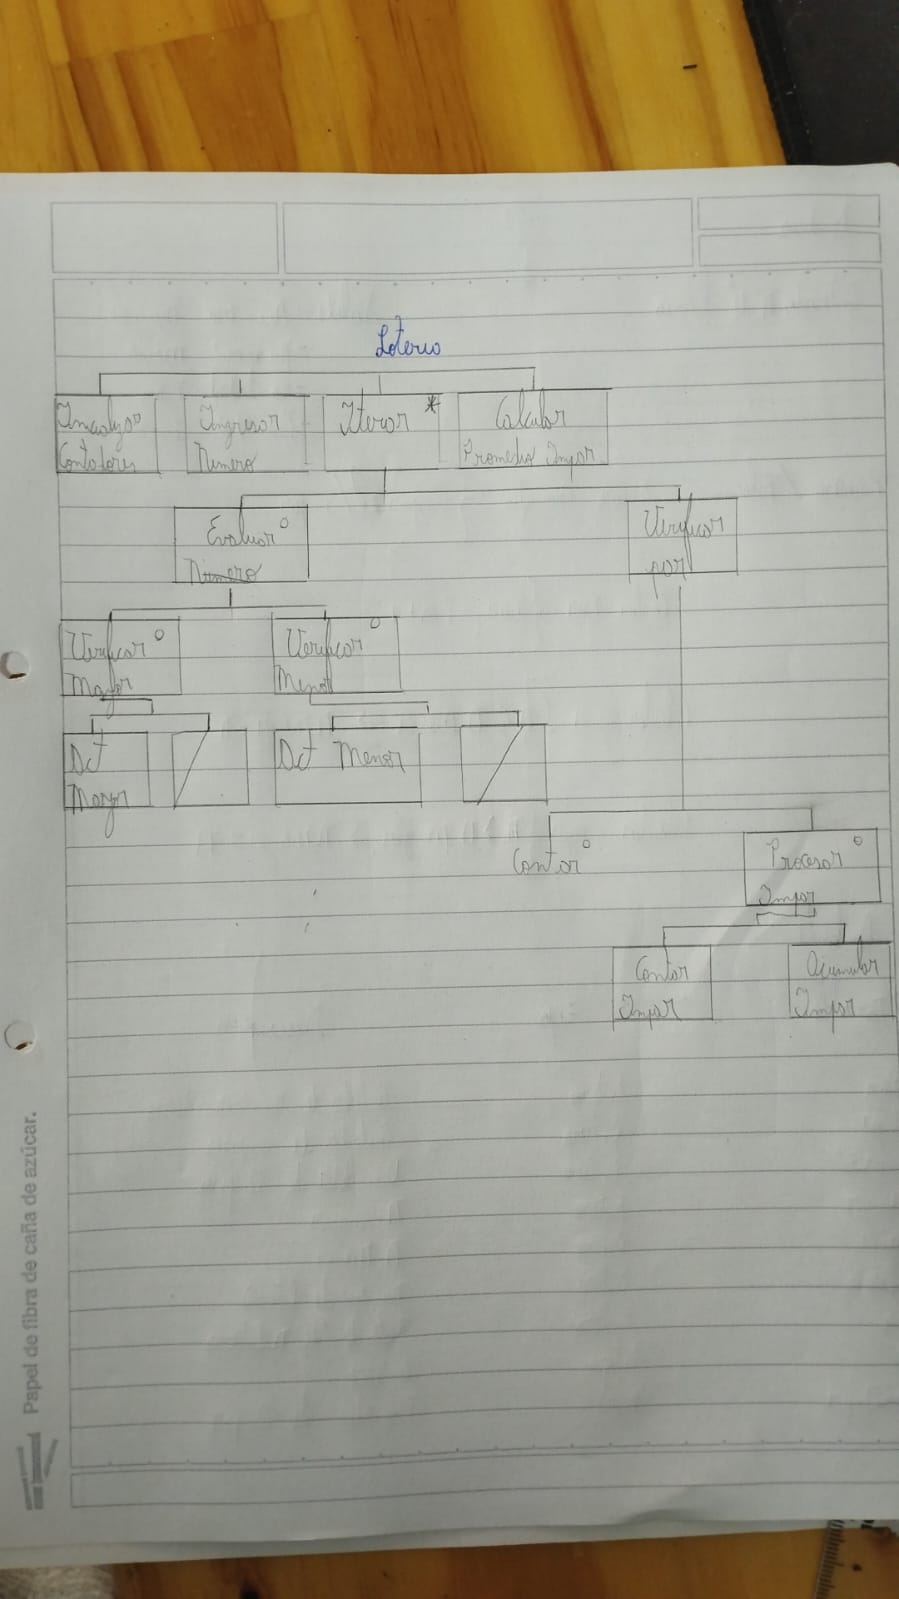 Loteria
Inicializo
Contadores
Ingresar
Numero
Iterar *
Calcular
Promedio Impar
Evaluar
Numero
Verificar
par
Verificar
Mayor
Verificar
Menor
Det
Mayor
Det Menor
Contar
Procesar
Impar
Contar
Impar
Acumular
Impar
Papel de fibra de caña de azúcar.